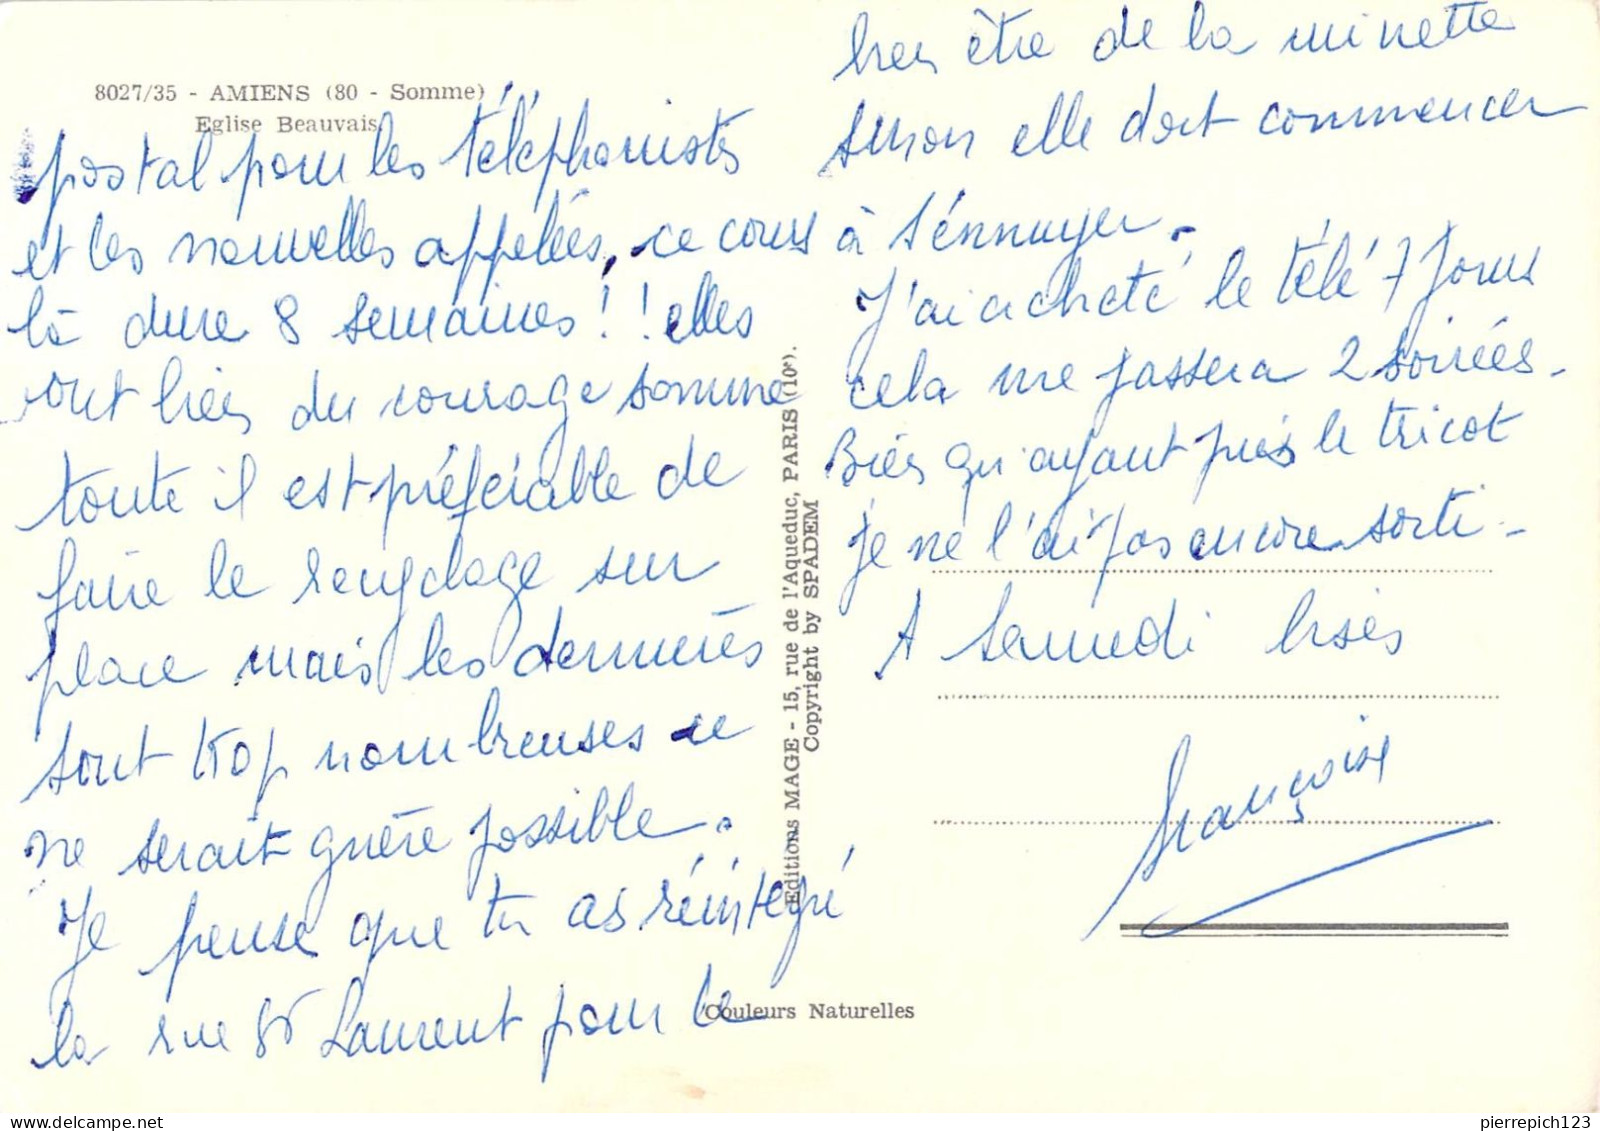 8027/35 - AMIENS (80 - Somme)
Eglise Beauvais
postal pour les téléphonistes
et les nouvelles appelées, ce cours
là dure 8 semaines !! elles
ont bien du courage somme
toute il est préférable de
faire le recyclage sur
place mais les dernières
sont trop nombreuses ce
ne serait guère possible.
Je pense que tu as réintégré
la rue St Laurent pour le
bien être de la minette
sinon elle doit commencer
à s'énnuyer.
J'ai acheté le télé 7 Jours
cela me passera 2 soirées.
Bien qu'ayant pris le tricot
je ne l'ai pas encore sorti -
A Samedi bises
Françoise
Editions MAGE - 15, rue de l'Aqueduc, PARIS (10e).
Copyright by SPADEM
Couleurs Naturelles
pierrepich123